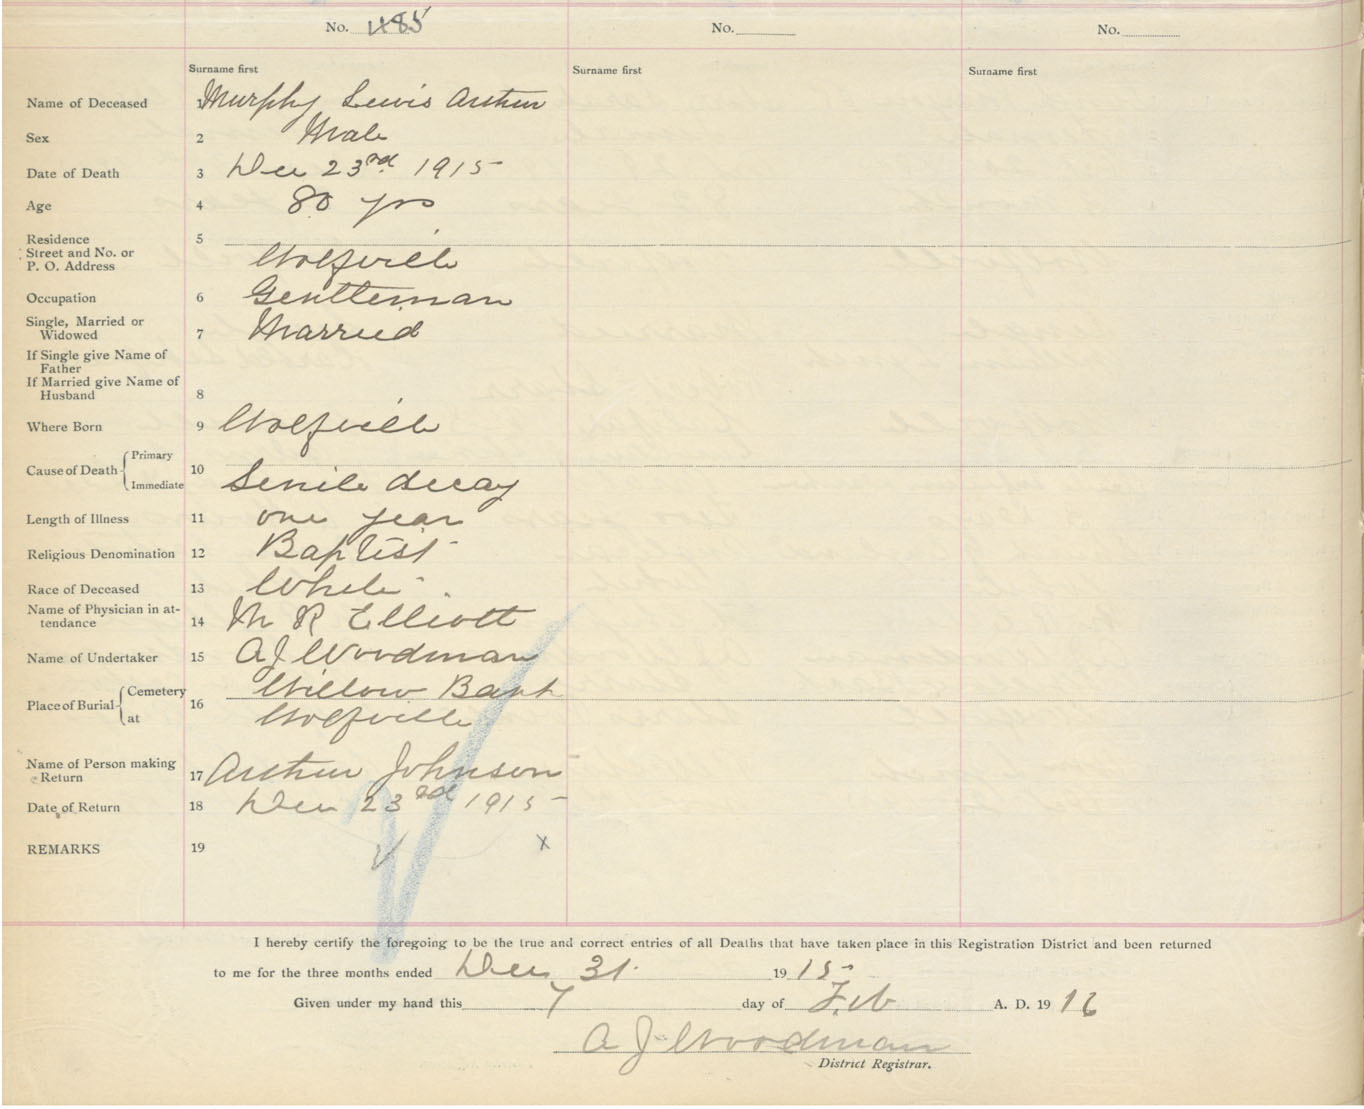 No. 1485 No. No.
Surname first Surname first Surname first
Name of Deceased 1 Murphy Lewis Arthur
Sex 2 Male
Date of Death 3 Dec 23rd 1915
Age 4 80 yrs
Residence 5
Street and No. or
P. O. Address Wolfville
Occupation 6 Gentleman
Single, Married or
Widowed 7 Married
If Single give Name of
Father
If Married give Name of
Husband 8
Where Born 9 Wolfville
Cause of Death Primary 10
Immediate Senile decay
Length of Illness 11 one year
Religious Denomination 12 Baptist
Race of Deceased 13 White
Name of Physician in at-
tendance 14 M R Elliott
Name of Undertaker 15 A J Woodman
Place of Burial Cemetery 16 Willow Bank
at Wolfville
Name of Person making
Return 17 Arthur Johnson
Date of Return 18 Dec 23rd 1915
REMARKS 19 x
I hereby certify the foregoing to be the true and correct entries of all Deaths that have taken place in this Registration District and been returned
to me for the three months ended Dec 31. 1915
Given under my hand this 7 day of Feb A. D. 1916
A J Woodman
District Registrar.